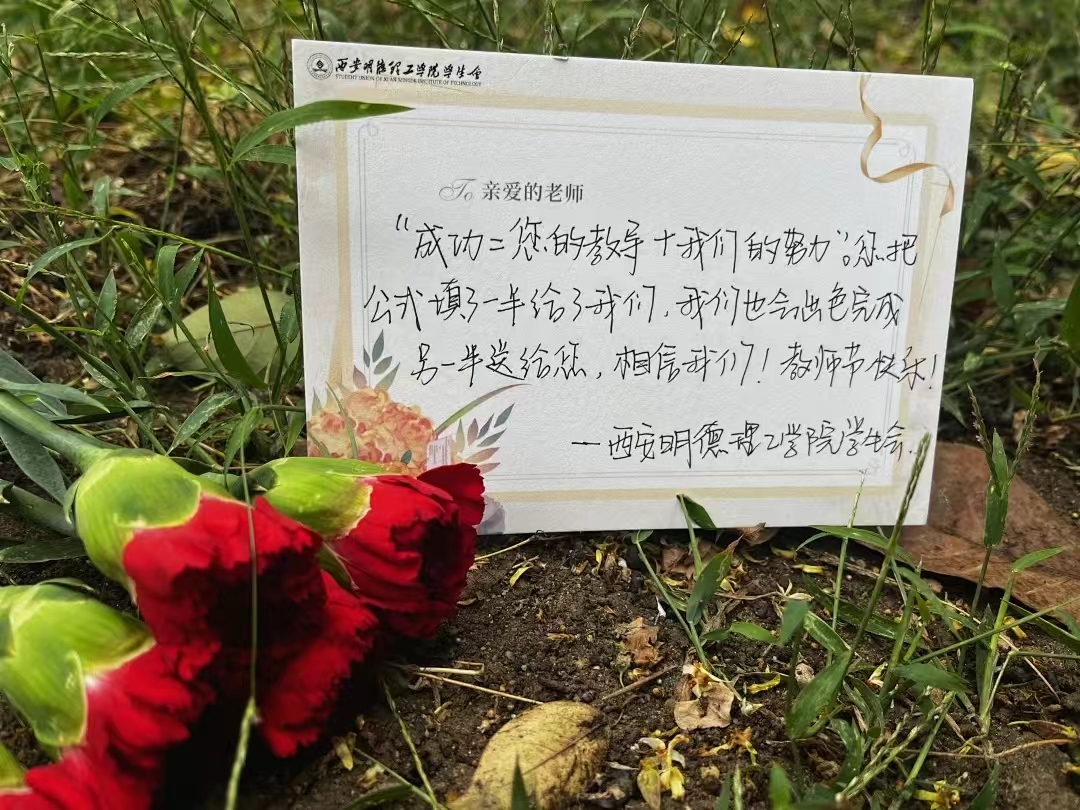 西安明德理工学院学生會
STUDENT UNION OF XI'AN MINGDE INSTITUTE OF TECHNOLOGY
To 亲爱的老师
“成功=您的教导+我们的努力”，您把
公式填了一半给了我们，我们也会出色完成
另一半送给您，相信我们！教师节快乐！
—西安明德理工学院学生会.